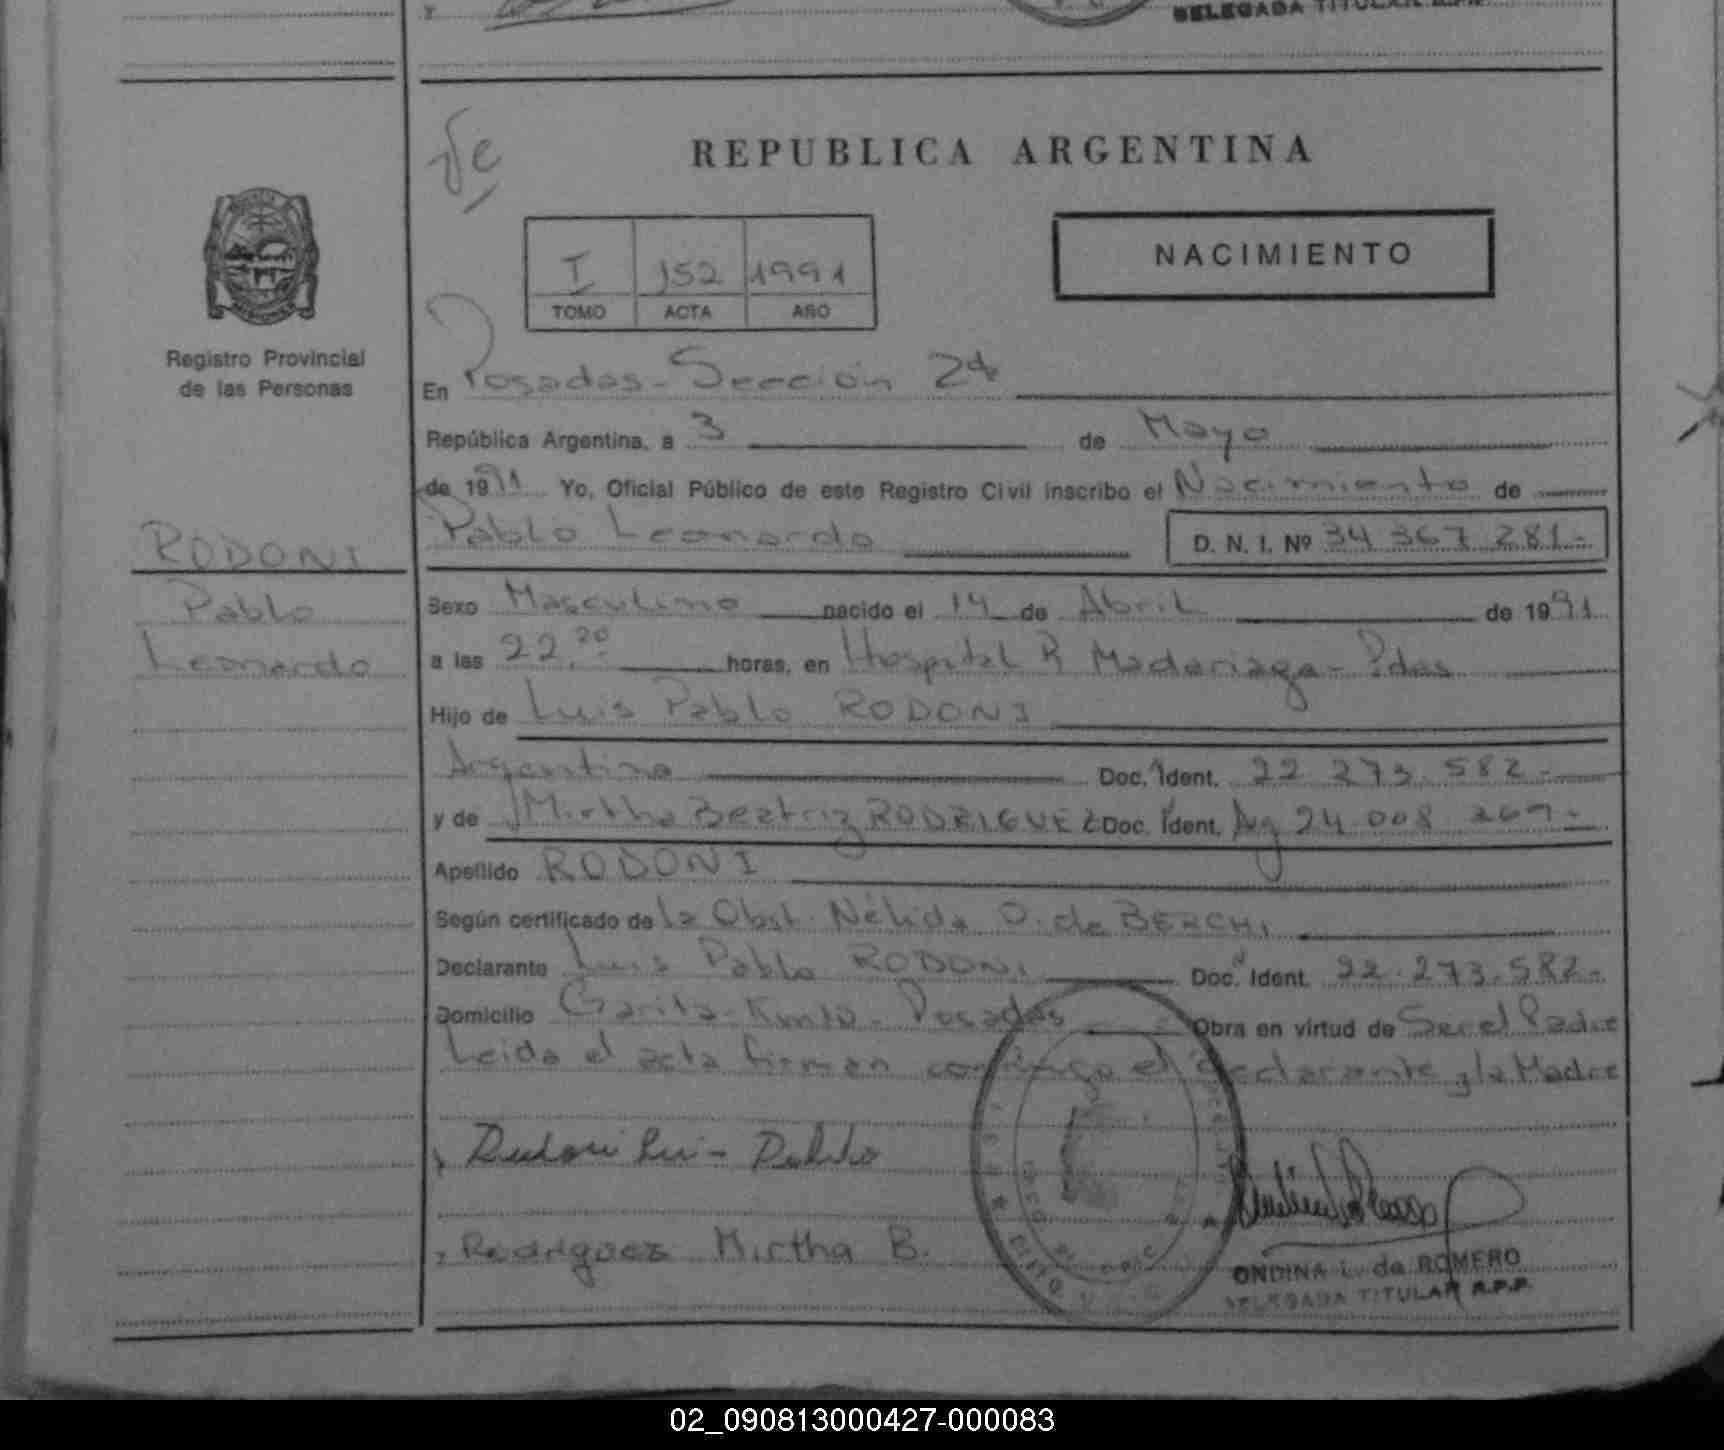 DELEGADA TITULAR R.P.P.
REPUBLICA ARGENTINA
NACIMIENTO
I 152 1991
TOMO ACTA AÑO
Registro Provincial
de las Personas
En Posadas - Sección 2da
República Argentina, a 3 de Mayo
de 1991 Yo, Oficial Público de este Registro Civil inscribo el Nacimiento de
Pablo Leonardo D. N. I. Nº 34 367 281.-
RODONI
Pablo
Leonardo
Sexo Masculino nacido el 14 de Abril de 1991
a las 22,20 horas, en Hospital R Madariaga - Pdas
Hijo de Luis Pablo RODONI
Argentino Doc. Ident. 22 273.582.-
y de Mirtha Beatriz RODRIGUEZ Doc. Ident. Ag 24 008 269.-
Apellido RODONI
Según certificado de la Obst. Nélida O. de BERCHI
Declarante Luis Pablo RODONI Doc. Ident. 22.273.582.-
Domicilio Garita - Posadas Obra en virtud de Ser el Padre
Leida el acta firman conmigo el declarante y la Madre
Rodriguez Mirtha B.
ONDINA L. de ROMERO
DELEGADA TITULAR R.P.P.
02_090813000427-000083